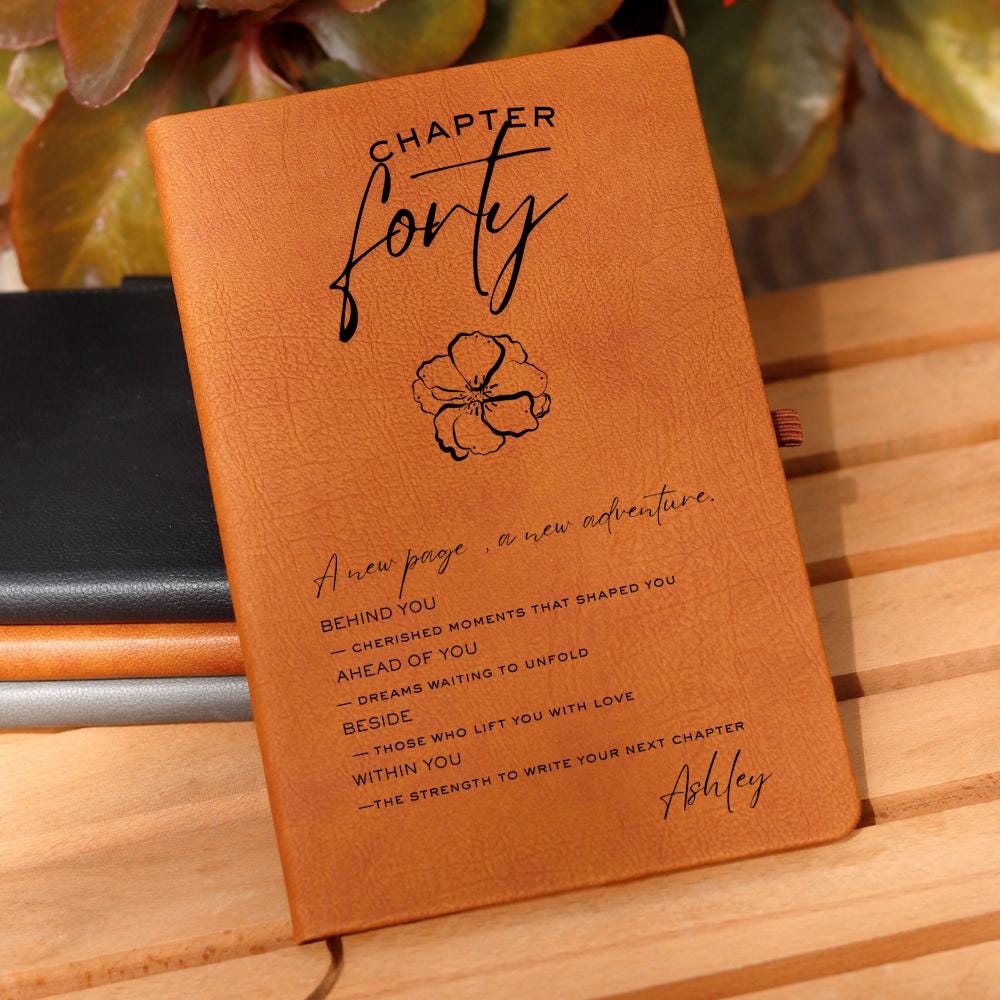 CHAPTER
forty
A new page , a new adventure.
BEHIND YOU
— CHERISHED MOMENTS THAT SHAPED YOU
AHEAD OF YOU
— DREAMS WAITING TO UNFOLD
BESIDE
— THOSE WHO LIFT YOU WITH LOVE
WITHIN YOU
—THE STRENGTH TO WRITE YOUR NEXT CHAPTER
Ashley